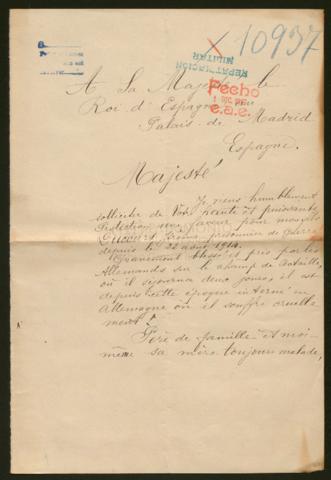 10937
REPATRIACION
MILITAR
Fecho
e.a.e.
A Sa Majesté le
Roi d'Espagne en son
Palais de Madrid
Espagne.
Majesté
Je viens humblement
sollicite de Votre haute et puissante
Protection une faveur pour mon fils
prisonnier de guerre
depuis le 22 août 1914.
Gravement blessé et pris par les
Allemands sur le champ de bataille,
où il séjourna deux jours, il est
depuis cette époque interné en
Allemagne où il souffre cruelle
ment.
Père de famille et moi-
même sa mère toujours malade,